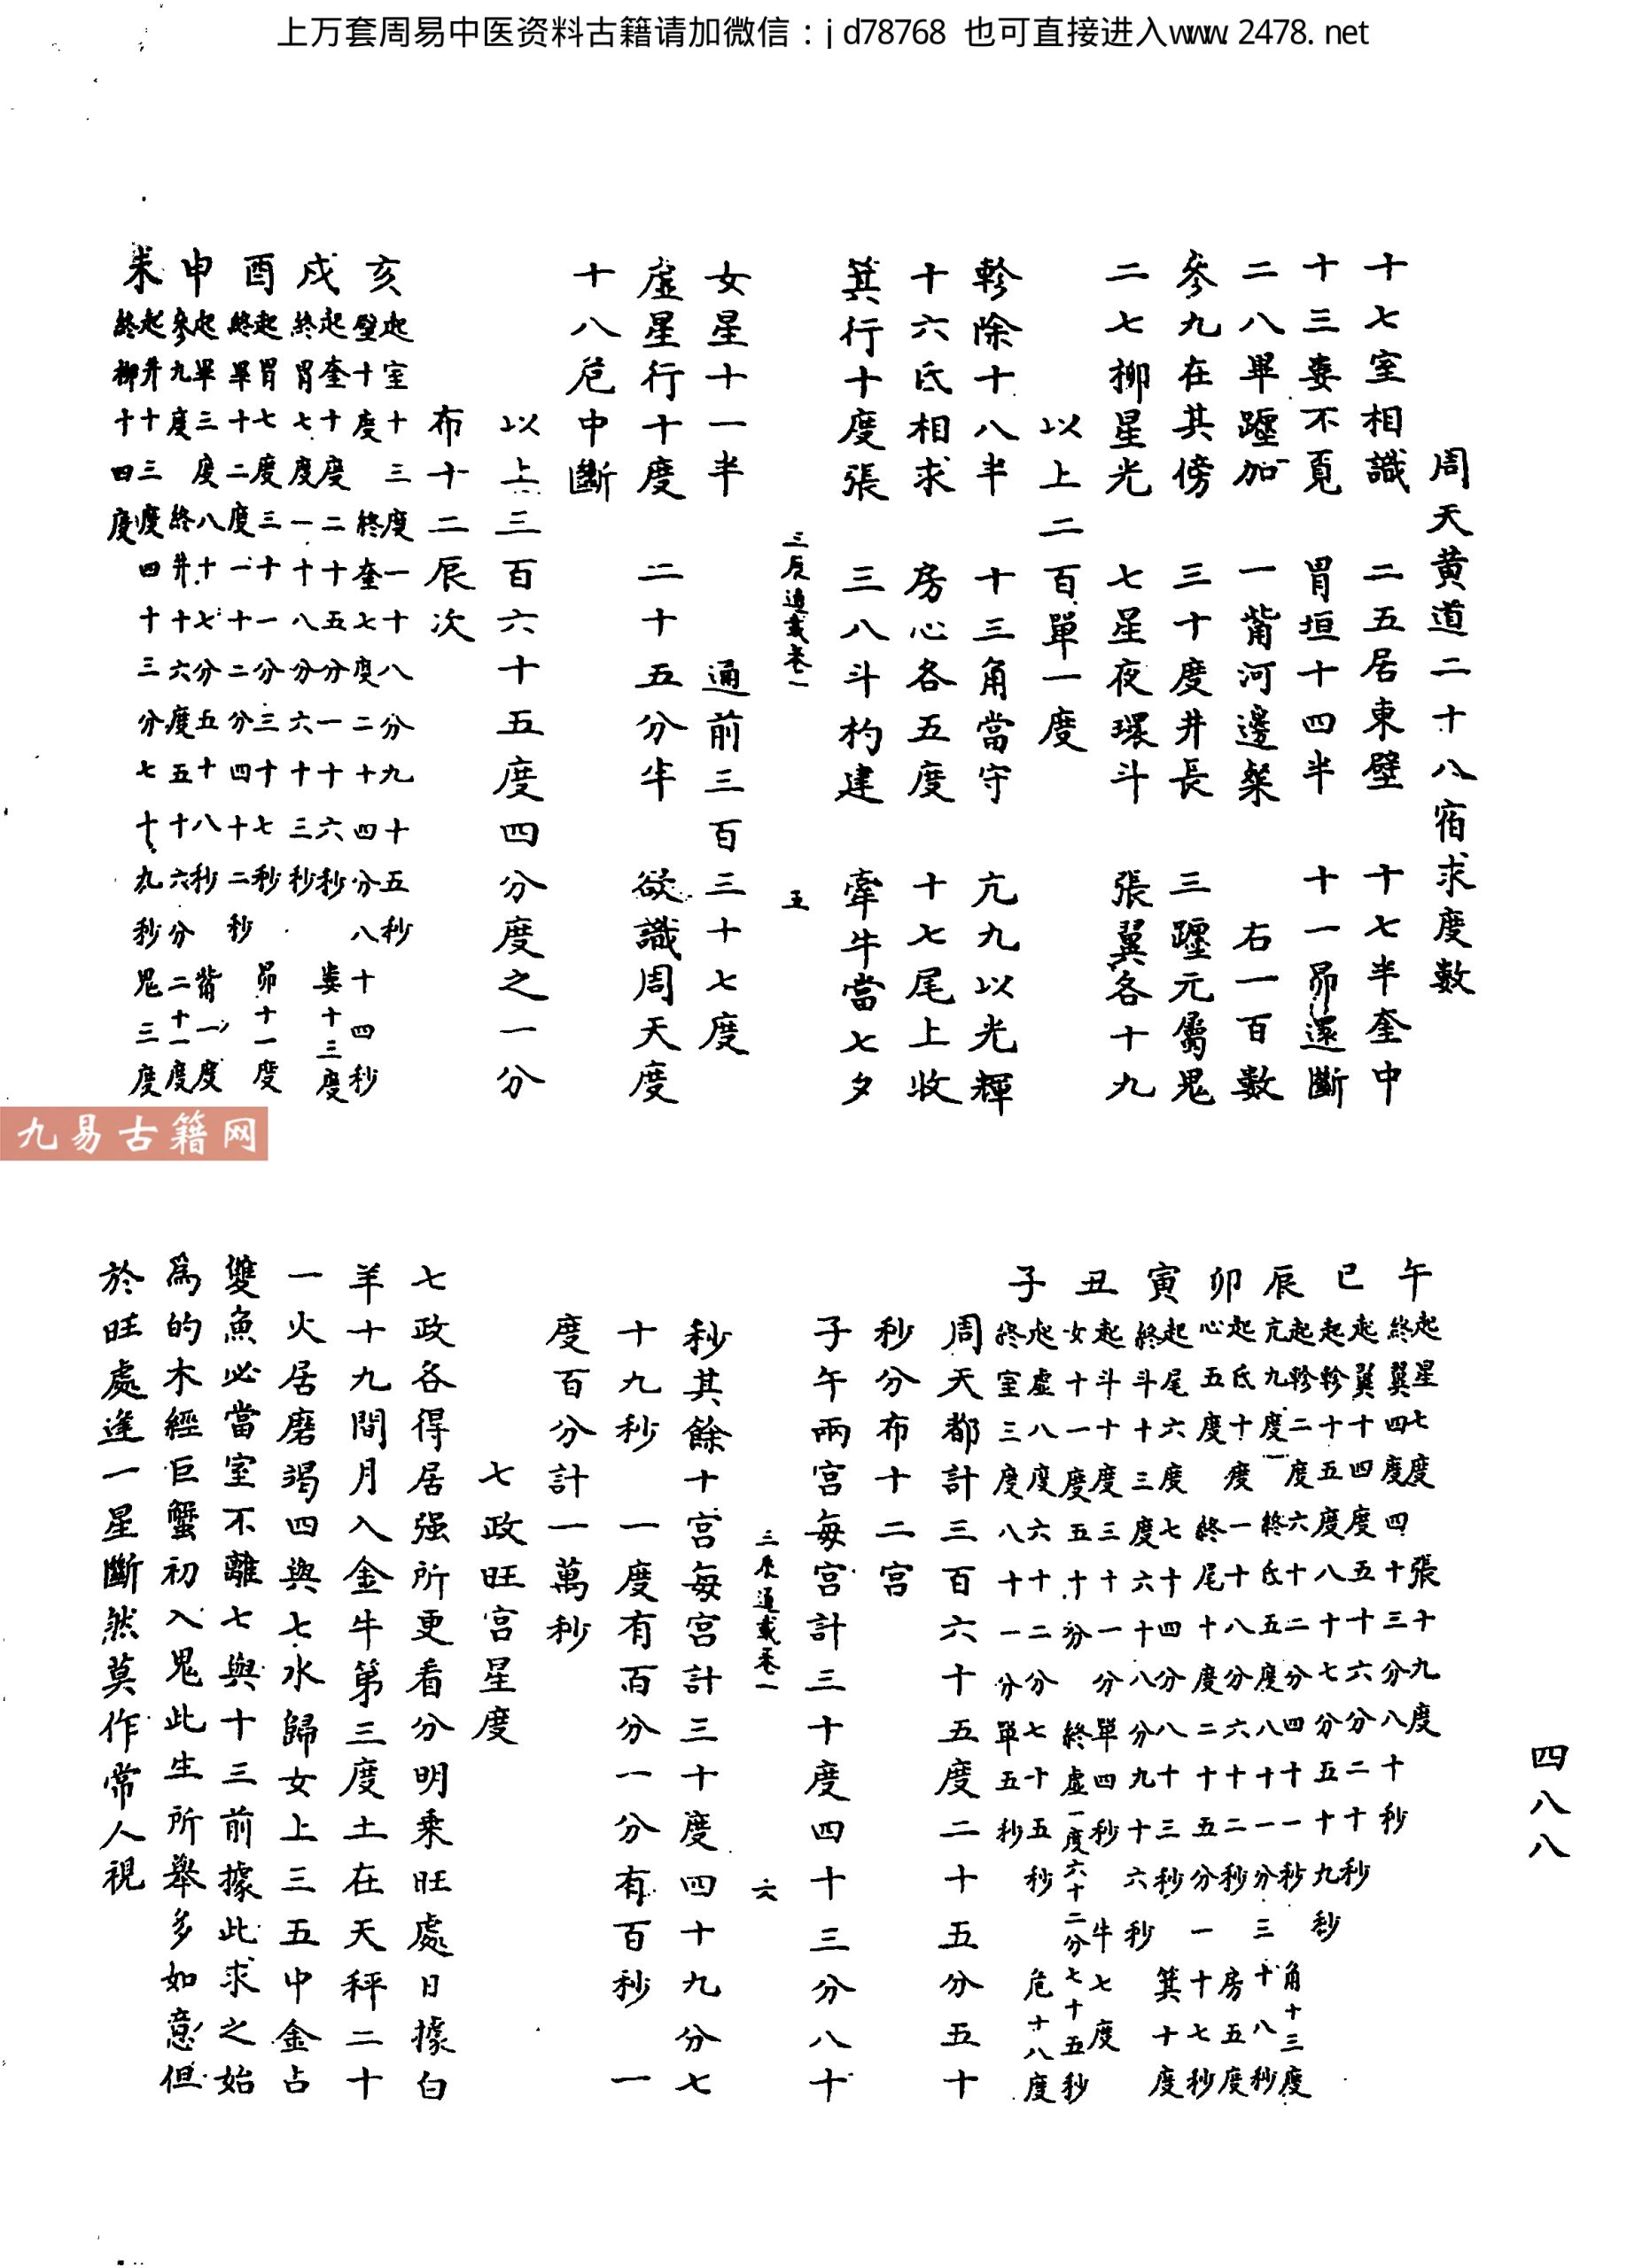 上万套周易中医资料古籍请加微信：jd78768 也可直接进入www.2478.net
周天黄道二十八宿求度數
十七室相識 二五居東壁 十七半奎中
十三婁不覓 胃垣十四半 十一昴還斷
二八畢躔加 一觜河邊粲 右一百數
參九在其傍 三十度井長 三躔元屬鬼
二七柳星光 七星夜環斗 張翼各十九
以上二百單一度
軫除十八半 十三角當守 亢九以光輝
十六氐相求 房心各五度 十七尾上收
箕行十度張 三八斗杓建 牽牛當七夕
三辰通載卷一 五
女星十一半 通前三百三十七度
虛星行十度 二十五分半 欲識周天度
十八危中斷
以上三百六十五度四分度之一分
布十二辰次
亥 起室十三度一十八分九十五秒
壁十度 終奎七度二十四分八十四秒
戌 起奎十度二十五分一十六秒 婁十三度
終胃七度一十八分六十三秒
酉 起胃七度三十一分三十七秒 昴十一度
終畢十二度一十二分四十二秒
申 起畢三度八十七分五十八秒 觜一度
參九度 終井十六度五十六分二十一度
未 起井十三度四十三分七十九秒 鬼三度
終柳十四度
九易古籍网
四八八
午 起星七度 張十九度
終翼四度四十三分八十秒
巳 起翼十四度五十六分二十秒
起軫十五度八十七分五十九秒
辰 起軫二度六十二分四十一秒 角十三度
亢九度 終氐五度八十一分三十八秒
卯 起氐十度一十八分六十二秒 房五度
心五度 終尾十度二十五分一十七秒
寅 起尾六度七十四分八十三秒 箕十度
終斗十三度六十八分九十六秒
丑 起斗十度三十一分單四秒 牛七度
女十一度五十分 終虛一度六十二分七十五秒
子 起虛八度六十二分七十五秒 危十八度
終室三度八十一分單五秒
周天都計三百六十五度二十五分五十
秒分布十二宫
子午兩宫每宫計三十度四十三分八十
三辰通載卷一 六
秒其餘十宫每宫計三十度四十九分七
十九秒 一度有百分一分有百秒 一
度百分計一萬秒
七政旺宫星度
七政各得居强所更看分明乘旺處日據白
羊十九間月入金牛第三度土在天秤二十
一火居磨竭四與七水歸女上三五中金占
雙魚必當室不離七與十三前據此求之始
爲的木經巨蟹初入鬼此生所舉多如意但
於旺處逢一星斷然莫作常人視